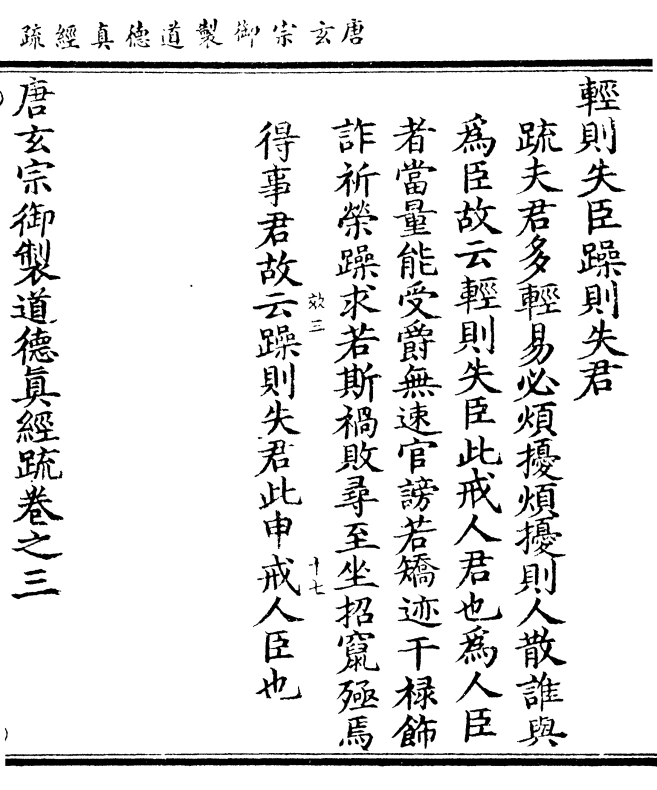 唐玄宗御製道德真經疏
輕則失臣躁則失君
疏夫君多輕易必煩擾煩擾則人散誰與
爲臣故云輕則失臣此戒人君也爲人臣
者當量能受爵無速官謗若矯迹干祿飾
詐祈榮躁求若斯禍敗尋至坐招竄殛焉
效三
十七
得事君故云躁則失君此申戒人臣也
唐玄宗御製道德眞經疏卷之三